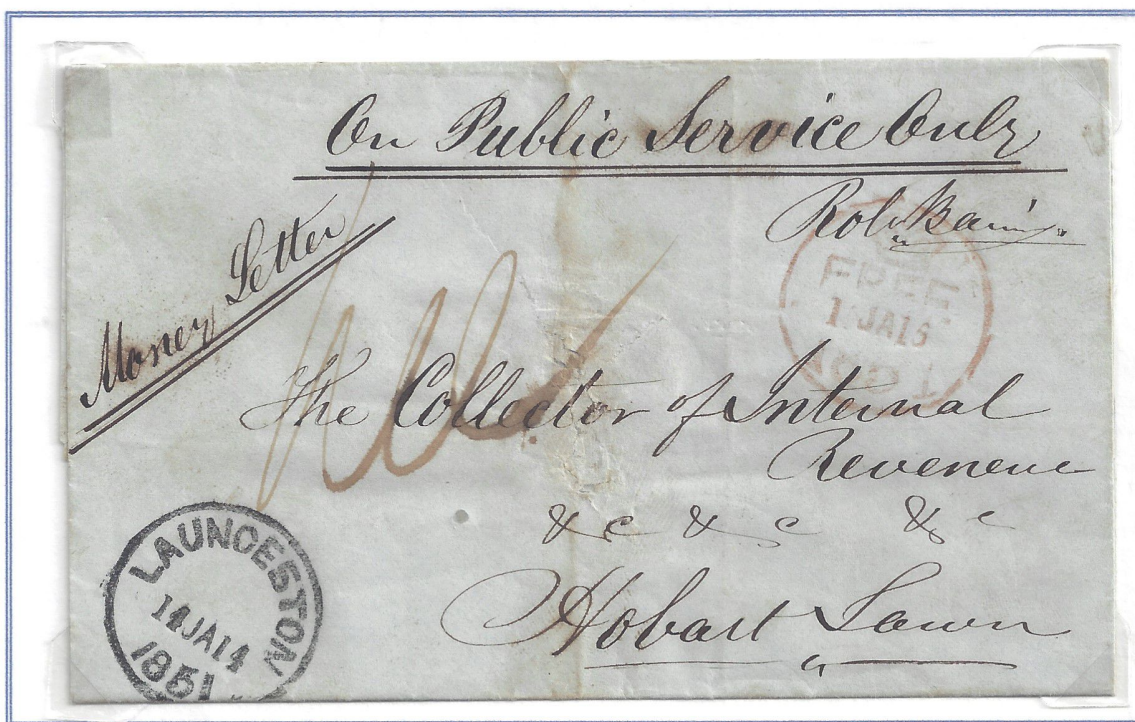 On Public Service Only
Money Letter
FREE
JA15
The Collector of Internal
Reveneue
&c &c &c
Hobart Town
LAUNCESTON
14JA14
1851